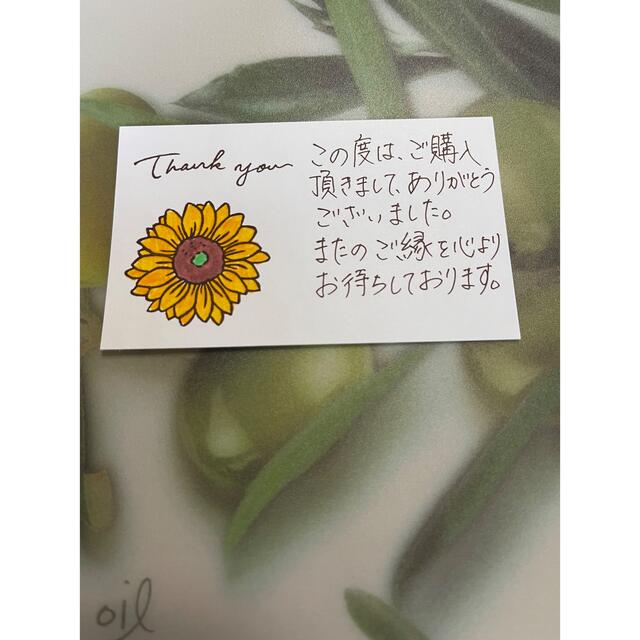 Thank you
この度は、ご購入
頂きまして、ありがとう
ございました。
またのご縁を心より
お待ちしております。
oil